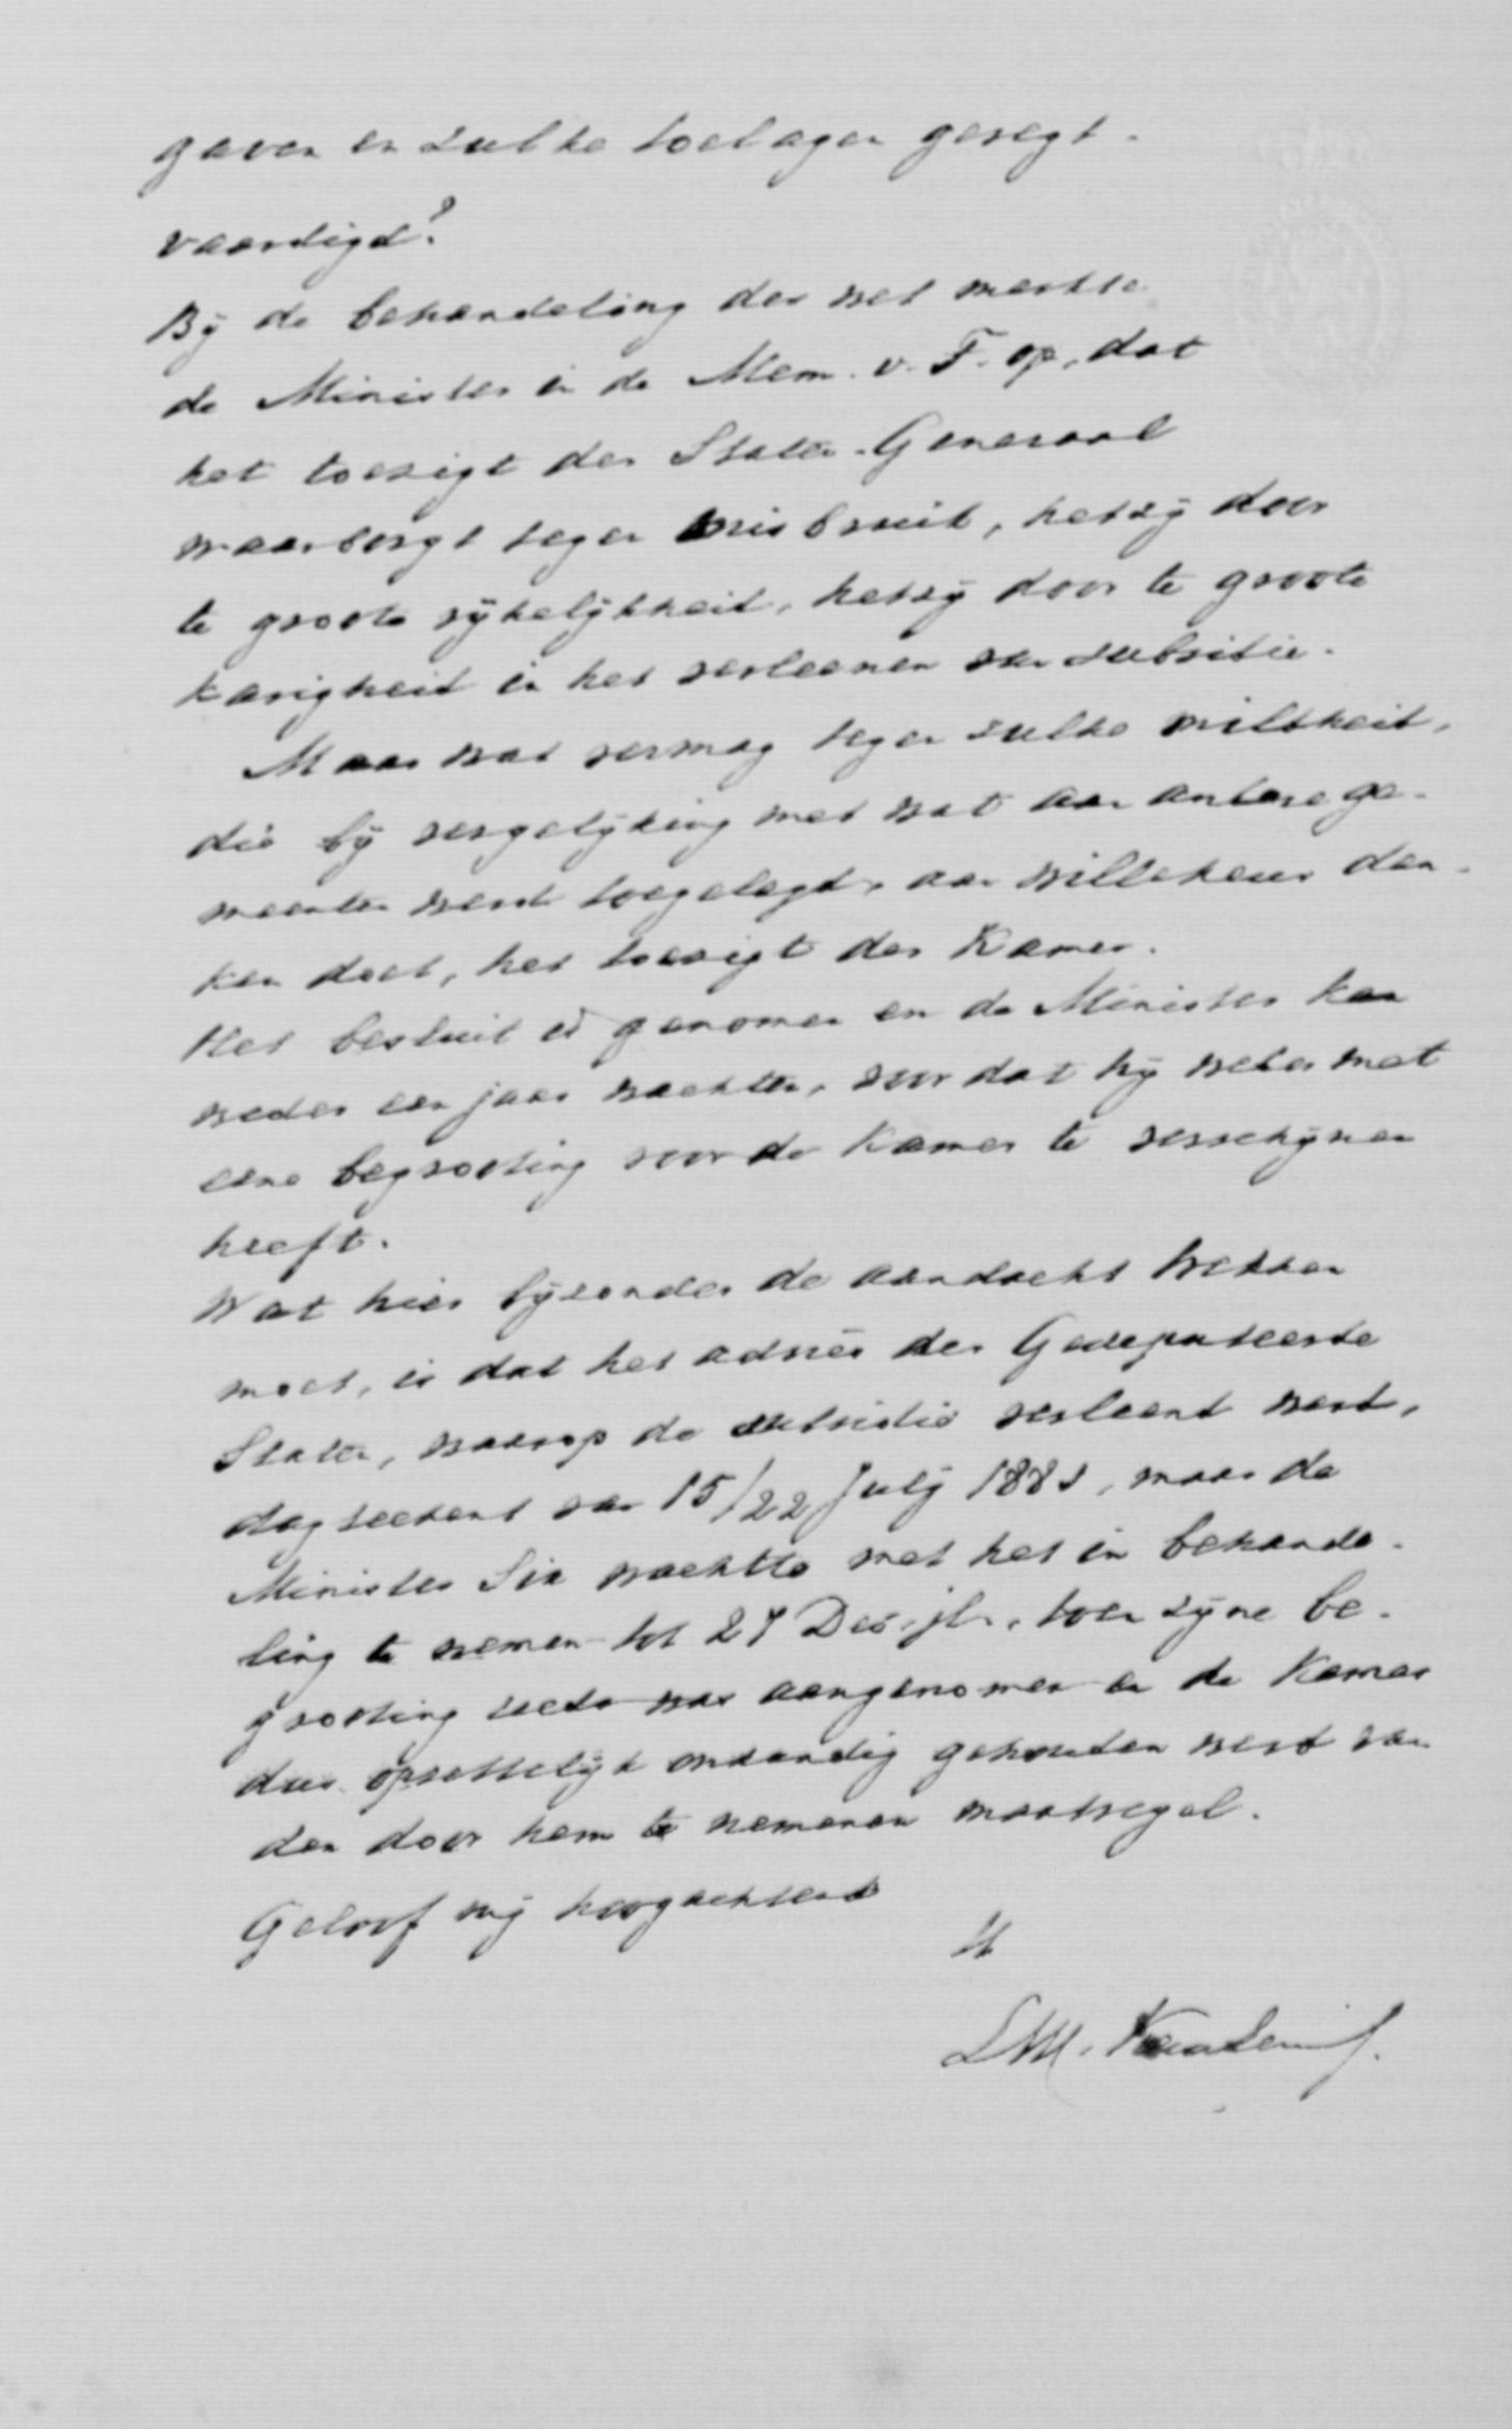 gaven en zulke toelagen geregt-
vaardigd?
By de behandeling der wet merkte
de Minister in de Mem. v. T. op, dat
het toezigt der Staten-Generaal
waarborgt tegen misbruik, hetzy door
te groote rykelykheid, hetzy door te groote
karigheid in het verleenen van subsidie.
Maar wat vermag tegen zulke mildheid,
die by vergelyking met wat aan andere ge-
meenten werd toegelegd, aan willekeur den-
ken doet, het toezigt der Kamer.
Het besluit is genomen en de Minister kan
weder een jaar wachten, voor dat hy weder met
eene begrooting voor de Kamer te verschynen
heeft.
Wat hier byzonder de aandacht trekken
moet, is dat het advies der Gedeputeerde
Staten, waarop de subsidie verleend werd,
dagteekent van 15/22 July 1881, maar de
Minister Six wachtte met het in behande-
ling te nemen tot 27 Dec. jl., toen zyne be-
grooting reeds was aangenomen en de Kamer
dus opzettelyk onkundig gehouden werd van
den door hem te nemenen maatregel.
Geloof my hoogachtend
U